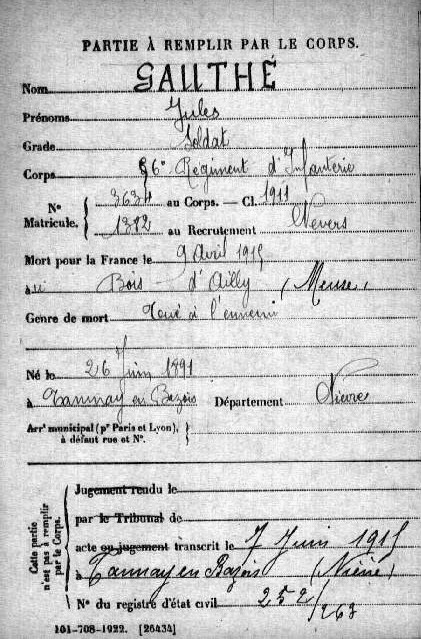 PARTIE À REMPLIR PAR LE CORPS.
Nom GAUTHÉ
Prénoms Jules
Grade Soldat
Corps 56e Régiment d'Infanterie
No Matricule. { 3634 au Corps. — Cl. 1911
1382 au Recrutement Nevers
Mort pour la France le 9 Avril 1915
à au Bois d'Ailly (Meuse)
Genre de mort Tué à l'ennemi
Né le 26 Juin 1891
à Tannay en Bazois Département Nièvre
Arrt municipal (pr Paris et Lyon), à défaut rue et No. {
Cette partie n'est pas à remplir par le Corps. {
Jugement rendu le
par le Tribunal de
acte ou jugement transcrit le 7 Juin 1915
à Tannay en Bazois (Nièvre)
No du registre d'état civil 252/263
101-708-1922. [26434]